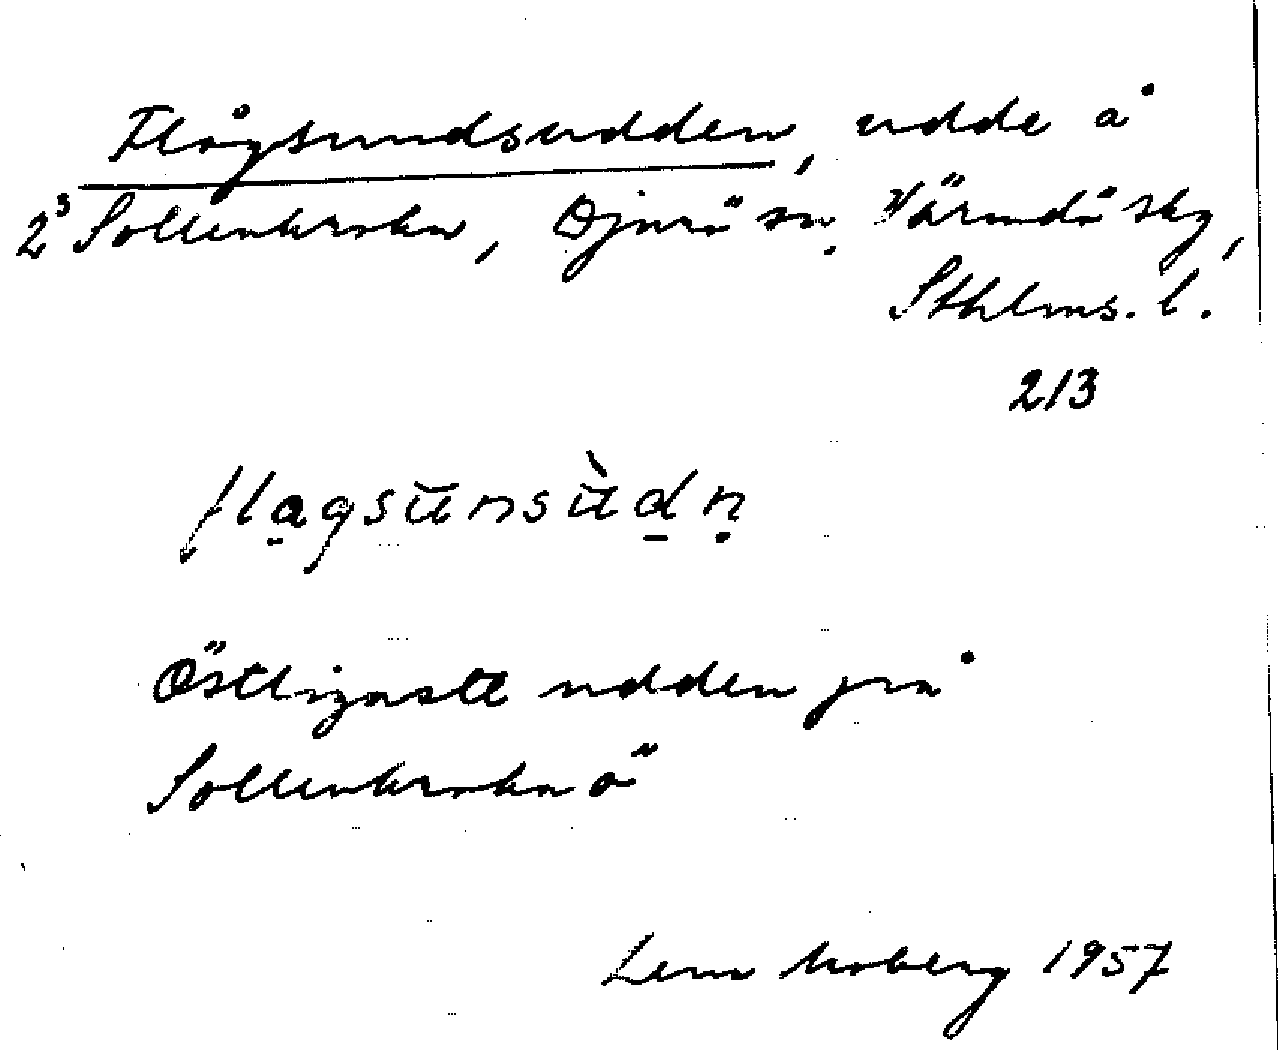 Flågsundsudden, udde å
2³ Sollenkroka, Djurö sn. Värmdö skg,
Sthlms. l.
213
flagsūnsùdn
Östligaste udden på
Sollenkroka ö
Lena Moberg 1957